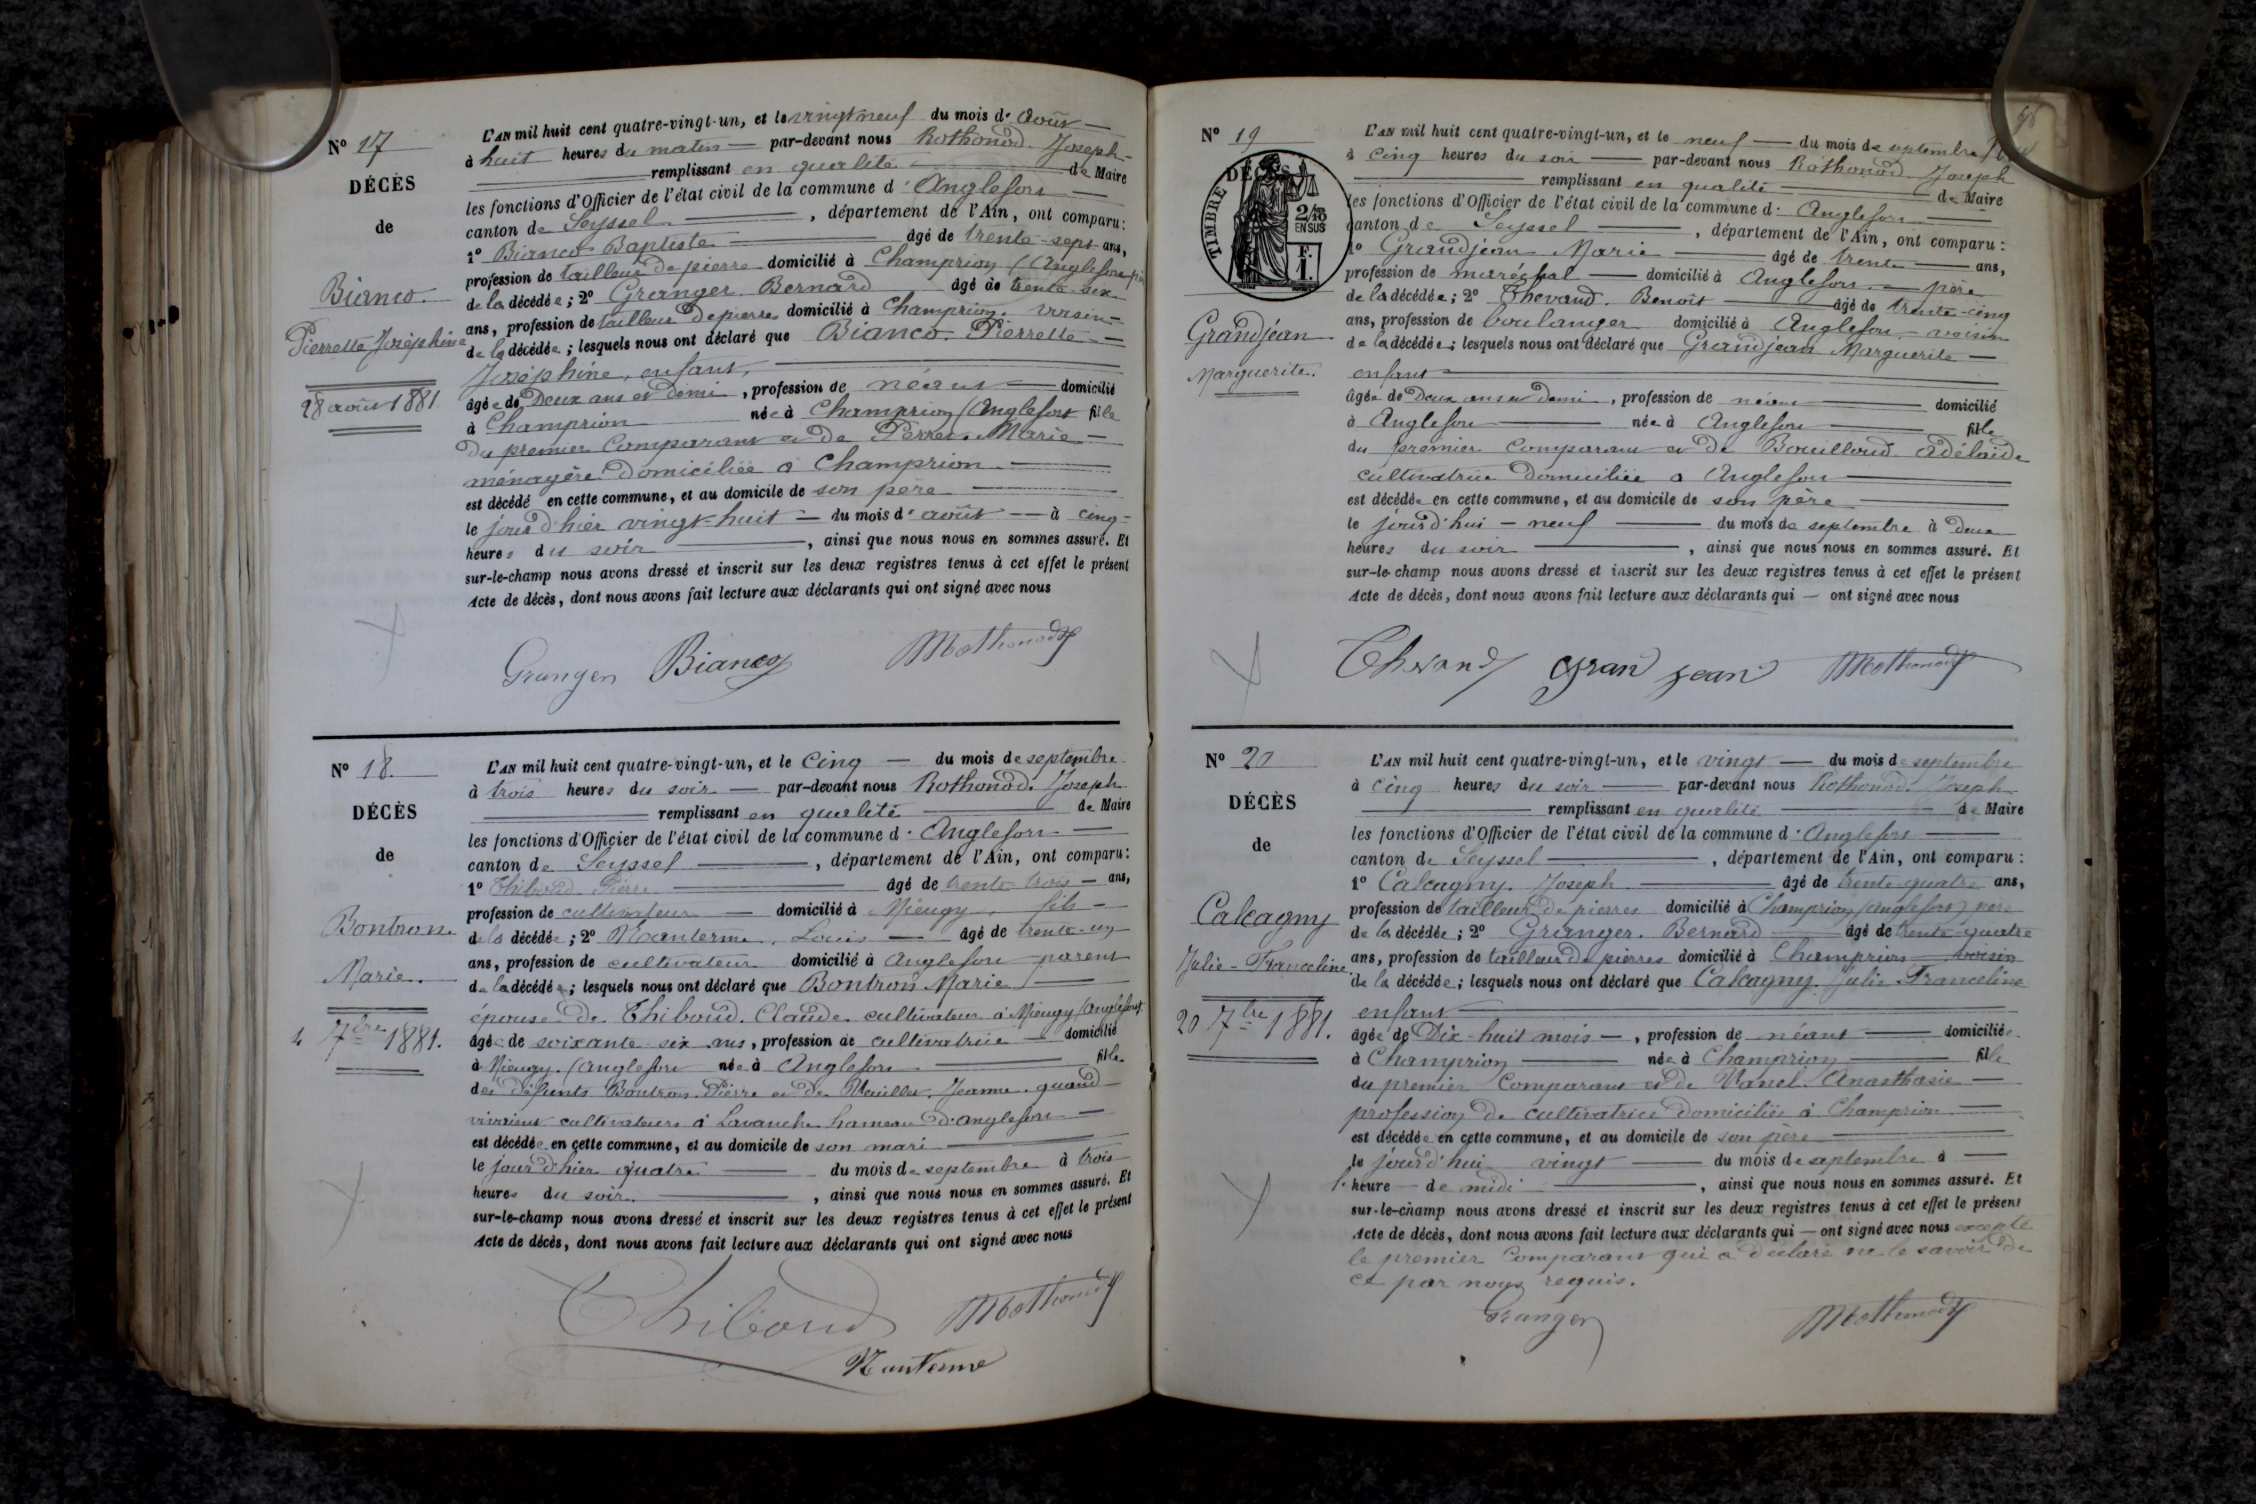 N° 17
DÉCÈS
de
Bianco.
Pierrette Joséphine
28 août 1881
L'AN mil huit cent quatre-vingt-un, et le vingt neuf du mois d' août
à huit heures du matin par-devant nous Rothonod. Joseph
remplissant en qualité de Maire
les fonctions d'Officier de l'état civil de la commune d' Anglefort
canton de Seyssel, département de l'Ain, ont comparu:
1° Bianco Baptiste âgé de trente-sept ans,
profession de tailleur de pierre domicilié à Champrion (Anglefort) père
de la décédée; 2° Granger Bernard âgé de trente-six
ans, profession de tailleur de pierres domicilié à Champrion. voisin
de la décédée; lesquels nous ont déclaré que Bianco. Pierrette
Joséphine, enfant,
âgée de Deux ans et demi, profession de néant domicilié
à Champrion née à Champrion (Anglefort fille
du premier comparant et de Perret. Marie
ménagère domiciliée à Champrion
est décédé en cette commune, et au domicile de son père
le jour d'hier vingt-huit du mois d' août à cinq
heures du soir, ainsi que nous nous en sommes assuré. Et
sur-le-champ nous avons dressé et inscrit sur les deux registres tenus à cet effet le présent
Acte de décès, dont nous avons fait lecture aux déclarants qui ont signé avec nous
Granger Bianco Rothonod
N° 18.
DÉCÈS
de
Bontron
Marie.
4 7bre 1881.
L'AN mil huit cent quatre-vingt-un, et le cinq du mois de septembre
à trois heures du soir par-devant nous Rothonod. Joseph
remplissant en qualité de Maire
les fonctions d'Officier de l'état civil de la commune d' Anglefort
canton de Seyssel, département de l'Ain, ont comparu:
1° Thiboud Pierre âgé de trente-trois ans,
profession de cultivateur domicilié à Mieugy, fils
de la décédée; 2° Nanterme, Louis âgé de trente-un
ans, profession de cultivateur domicilié à Anglefort parent
de la décédée; lesquels nous ont déclaré que Bontron Marie
épouse de Thiboud. Claude cultivateur à Mieugy (Anglefort
âgée de soixante six ans, profession de cultivatrice domicilié
à Mieugy. (Anglefort née à Anglefort fille
des défunts Bontron. Pierre et de Jeanne. quand
vivaient cultivateurs à Lavanche hameau d'Anglefort
est décédée en cette commune, et au domicile de son mari
le jour d'hier quatre du mois de septembre à trois
heures du soir, ainsi que nous nous en sommes assuré. Et
sur-le-champ nous avons dressé et inscrit sur les deux registres tenus à cet effet le présent
Acte de décès, dont nous avons fait lecture aux déclarants qui ont signé avec nous
Thiboud Rothonod
Nanterme
N° 19
DÉCÈS
TIMBRE
2/10
EN SUS
F.
1.
Grandjean
Marguerite.
L'AN mil huit cent quatre-vingt-un, et le neuf du mois de septembre
à cinq heures du soir par-devant nous Rothonod Joseph
remplissant en qualité de Maire
les fonctions d'Officier de l'état civil de la commune d' Anglefort
canton de Seyssel, département de l'Ain, ont comparu:
1° Grandjean Marie âgé de trente ans,
profession de maréchal domicilié à Anglefort. père
de la décédée; 2° Thevand. Benoit âgé de trente-cinq
ans, profession de boulanger domicilié à Anglefort voisin
de la décédée; lesquels nous ont déclaré que Grandjean Marguerite
enfant
âgée de Deux ans et demi, profession de néant domicilié
à Anglefort née à Anglefort fille
du premier comparant et de Bouilloud Adélaïde
cultivatrice domiciliée à Anglefort
est décédée en cette commune, et au domicile de son père
le jourd'hui neuf du mois de septembre à deux
heures du soir, ainsi que nous nous en sommes assuré. Et
sur-le-champ nous avons dressé et inscrit sur les deux registres tenus à cet effet le présent
Acte de décès, dont nous avons fait lecture aux déclarants qui ont signé avec nous
Thevand gran jean Rothonod
N° 20
DÉCÈS
de
Calcagny
Julie-Franceline.
20 7bre 1881.
L'AN mil huit cent quatre-vingt-un, et le vingt du mois de septembre
à cinq heures du soir par-devant nous Rothonod. Joseph
remplissant en qualité de Maire
les fonctions d'Officier de l'état civil de la commune d' Anglefort
canton de Seyssel, département de l'Ain, ont comparu:
1° Calcagny. Joseph âgé de trente-quatre ans,
profession de tailleur de pierres domicilié à Champrion (Anglefort) père
de la décédée; 2° Granger. Bernard âgé de trente-quatre
ans, profession de tailleur de pierres domicilié à Champrion voisin
de la décédée; lesquels nous ont déclaré que Calcagny. Julie Franceline
enfant
âgée de Dix-huit mois, profession de néant domiciliée
à Champrion née à Champrion fille
du premier comparant et de Vanel. Anasthasie
profession de cultivatrice domiciliée à Champrion
est décédée en cette commune, et au domicile de son père
le jourd'hui vingt du mois de septembre à
1. heure de midi, ainsi que nous nous en sommes assuré. Et
sur-le-champ nous avons dressé et inscrit sur les deux registres tenus à cet effet le présent
Acte de décès, dont nous avons fait lecture aux déclarants qui ont signé avec nous excepté
le premier comparant qui a déclaré ne le savoir de
ce par nous requis.
Granger Rothonod